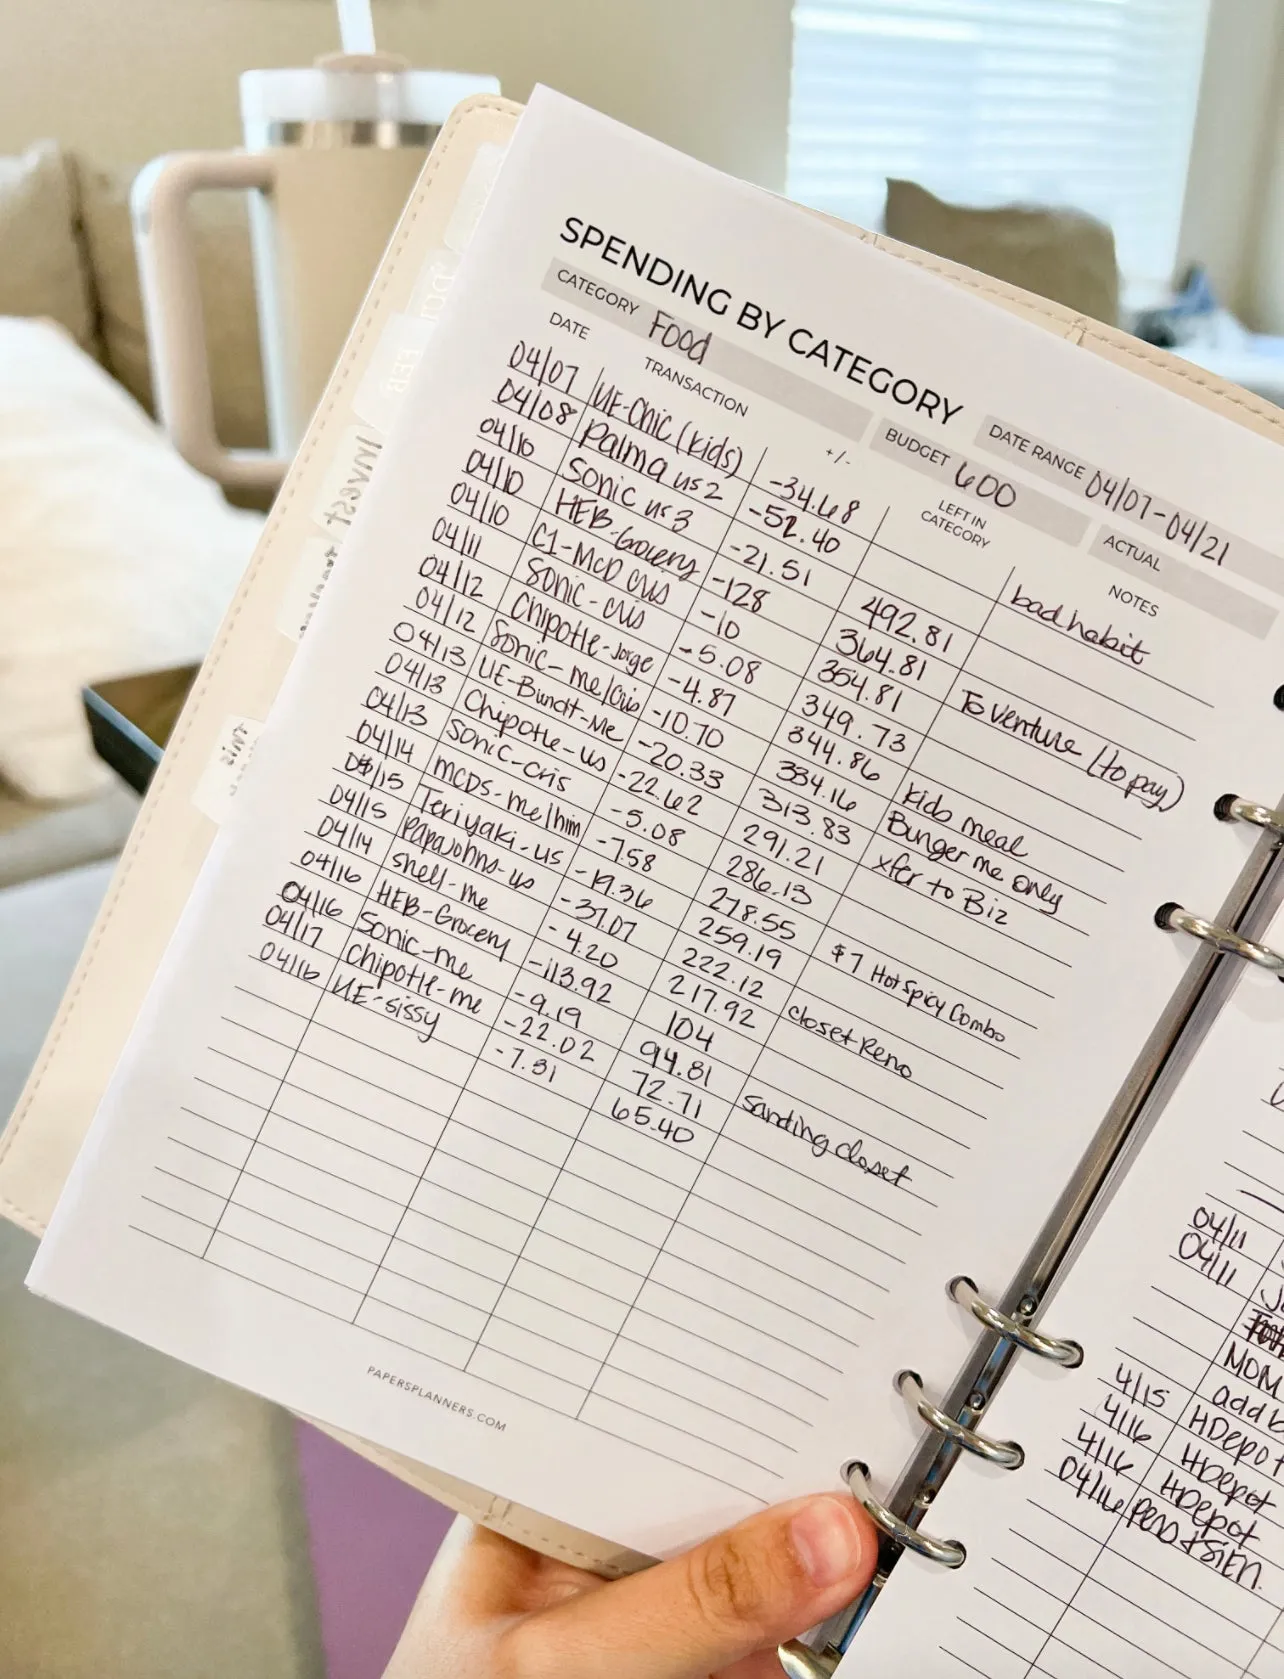 SPENDING BY CATEGORY
CATEGORY Food BUDGET 600 DATE RANGE 04/07-04/21 ACTUAL
DATE TRANSACTION +/- LEFT IN CATEGORY NOTES
04/07 UE-Chic (kids) -34.68
04/08 Palma us 2 -52.40 bad habit
04/10 Sonic us 3 -21.51 492.81
04/10 HEB-Grocery -128 364.81
04/10 C1-McD cris -10 354.81 To venture (to pay)
04/11 Sonic-cris -5.08 349.73
04/12 Chipotle-Jorge -4.87 344.86 kids meal
04/12 Sonic-me/cris -10.70 334.16 Burger me only
04/13 UE-Bundt-Me -20.33 313.83 xfer to Biz
04/13 Chipotle-us -22.62 291.21
04/13 Sonic-cris -5.08 286.13
04/14 MCDS-me/him -7.58 278.55 $7 Hot Spicy Combo
04/15 Teriyaki-us -19.36 259.19
04/15 Papajohns-us -37.07 222.12 closet Reno
04/14 Shell-me -4.20 217.92
04/16 HEB-Grocery -113.92 104
04/16 Sonic-me -9.19 94.81 sanding closet
04/17 Chipotle-me -22.02 72.71
04/16 UE-sissy -7.31 65.40
PAPERSPLANNERS.COM
INVEST
04/11
04/11
MOM
4/15 add
4/16 HDepot
4/16 HDepot
04/16 HDepot